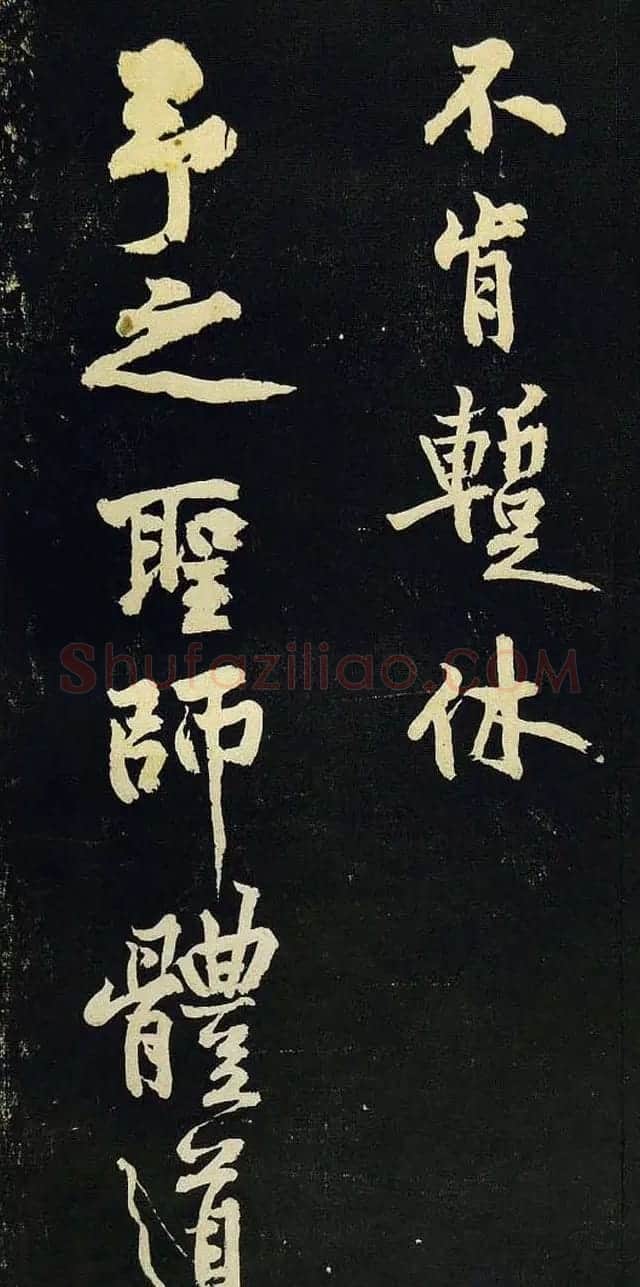 不肯蹔休
予之聖師體道
Shufaziliao.COM